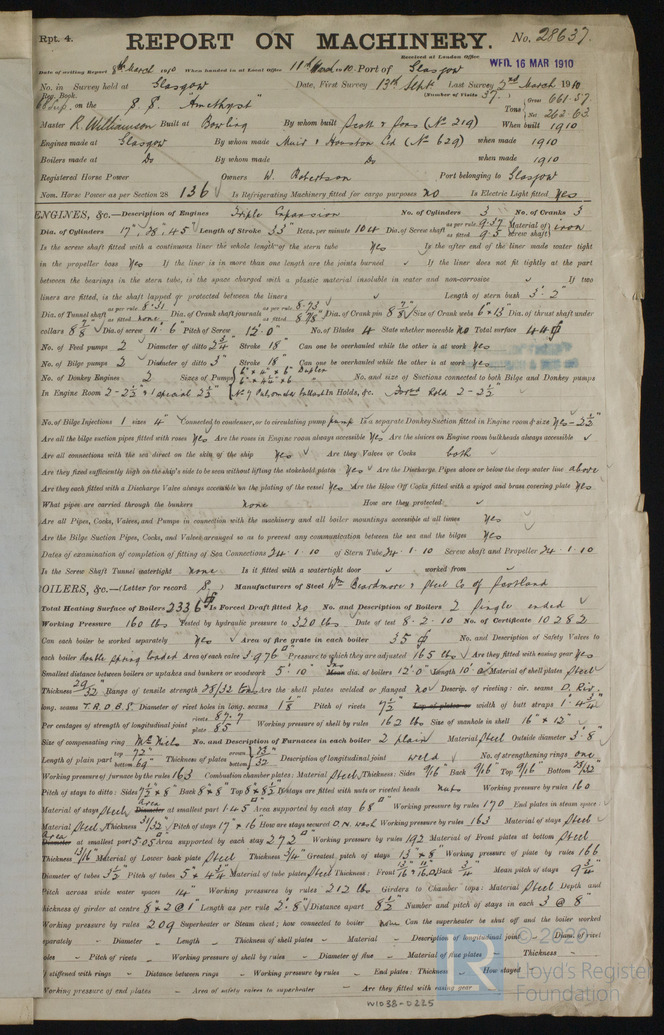 Rpt. 4. REPORT ON MACHINERY. No. 28637.
Received at London Office WED. 16 MAR 1910
Date of writing Report 8th March 1910 When handed in at Local Office 11th March 10 Port of Glasgow
No. in Survey held at Glasgow Date, First Survey 13th Sept Last Survey 2nd March 1910
Reg. Book. (Number of Visits 37.)
on the S.S. "Amethyst" Tons Gross 661.57 Net 262.63
Master R. Williamson Built at Bowling By whom built Scott & Sons (No 219) When built 1910
Engines made at Glasgow By whom made Muir & Houston Ltd (No 629) when made 1910
Boilers made at Do By whom made Do when made 1910
Registered Horse Power Owners W. Robertson Port belonging to Glasgow
Nom. Horse Power as per Section 28 136 Is Refrigerating Machinery fitted for cargo purposes No Is Electric Light fitted Yes
ENGINES, &c.—Description of Engines Triple Expansion No. of Cylinders 3 No. of Cranks 3
Dia. of Cylinders 17" 28" 45" Length of Stroke 33" Revs. per minute 104 Dia. of Screw shaft as per rule 9.37 as fitted 9.5 Material of screw shaft iron
Is the screw shaft fitted with a continuous liner the whole length of the stern tube Yes Is the after end of the liner made water tight
in the propeller boss Yes If the liner is in more than one length are the joints burned If the liner does not fit tightly at the part
between the bearings in the stern tube, is the space charged with a plastic material insoluble in water and non-corrosive If two
liners are fitted, is the shaft lapped or protected between the liners Length of stern bush 3'.2"
Dia. of Tunnel shaft as per rule 8.31 as fitted none Dia. of Crank shaft journals as per rule 8.73 as fitted 8.78" Dia. of Crank pin 8 7/8" Size of Crank webs 6" x 13" Dia. of thrust shaft under
collars 8 7/8" Dia. of screw 11'.6" Pitch of Screw 12'.0" No. of Blades 4 State whether moveable No Total surface 44
No. of Feed pumps 2 Diameter of ditto 2 3/4" Stroke 18" Can one be overhauled while the other is at work Yes
No. of Bilge pumps 2 Diameter of ditto 3" Stroke 18" Can one be overhauled while the other is at work Yes
No. of Donkey Engines 2 Sizes of Pumps 6" x 4" x 6" Duplex No. and size of Suctions connected to both Bilge and Donkey pumps
In Engine Room 2-2 1/2" & 1 special 2 1/2" In Holds, &c. Hold 2-2 1/2"
No. of Bilge Injections 1 sizes 4" Connected to condenser, or to circulating pump pump Is a separate Donkey Suction fitted in Engine room & size Yes-2 1/2"
Are all the bilge suction pipes fitted with roses Yes Are the roses in Engine room always accessible Yes Are the sluices on Engine room bulkheads always accessible
Are all connections with the sea direct on the skin of the ship Yes Are they Valves or Cocks both
Are they fixed sufficiently high on the ship's side to be seen without lifting the stokehold plates Yes Are the Discharge Pipes above or below the deep water line above
Are they each fitted with a Discharge Valve always accessible on the plating of the vessel Yes Are the Blow Off Cocks fitted with a spigot and brass covering plate Yes
What pipes are carried through the bunkers none How are they protected
Are all Pipes, Cocks, Valves, and Pumps in connection with the machinery and all boiler mountings accessible at all times Yes
Are the Bilge Suction Pipes, Cocks, and Valves arranged so as to prevent any communication between the sea and the bilges Yes
Dates of examination of completion of fitting of Sea Connections 24.1.10 of Stern Tube 24.1.10 Screw shaft and Propeller 24.1.10
Is the Screw Shaft Tunnel watertight none Is it fitted with a watertight door worked from
BOILERS, &c.—(Letter for record S) Manufacturers of Steel Wm Beardmore & Steel Co of Scotland
Total Heating Surface of Boilers 2336 Is Forced Draft fitted No No. and Description of Boilers 2 Single ended
Working Pressure 160 lbs Tested by hydraulic pressure to 320 lbs Date of test 8.2.10 No. of Certificate 10282
Can each boiler be worked separately Yes Area of fire grate in each boiler 35 No. and Description of Safety Valves to
each boiler double spring loaded Area of each valve 3.976 Pressure to which they are adjusted 165 lbs Are they fitted with easing gear Yes
Smallest distance between boilers or uptakes and bunkers or woodwork 5'.10" Mean dia. of boilers 12'.0" Length 10'.0" Material of shell plates Steel
Thickness 29/32" Range of tensile strength 28/32 tons Are the shell plates welded or flanged No Descrip. of riveting: cir. seams D. Riv.
long. seams T.R.D.B.S. Diameter of rivet holes in long. seams 1 1/8" Pitch of rivets 7 1/2" Lap of plates or width of butt straps 1'.4 3/4"
Per centages of strength of longitudinal joint rivets 87.7 plate 85 Working pressure of shell by rules 162 lbs Size of manhole in shell 16" x 12"
Size of compensating ring McNeils No. and Description of Furnaces in each boiler 2 plain Material Steel Outside diameter 3'.8"
Length of plain part top 72" bottom 69" Thickness of plates crown bottom 23/32" Description of longitudinal joint weld No. of strengthening rings one
Working pressure of furnace by the rules 163 Combustion chamber plates: Material Steel Thickness: Sides 9/16" Back 9/16" Top 9/16" Bottom 25/32"
Pitch of stays to ditto: Sides 7 1/2 x 8" Back 8" x 8" Top 8" x 8 1/2" If stays are fitted with nuts or riveted heads nuts Working pressure by rules 160
Material of stays Steel Diameter Area at smallest part 1.45 Area supported by each stay 68 Working pressure by rules 170 End plates in steam space:
Material Steel Thickness 31/32" Pitch of stays 17" x 16" How are stays secured D.N. wash Working pressure by rules 163 Material of stays Steel
Diameter Area at smallest part 5.05 Area supported by each stay 272 Working pressure by rules 192 Material of Front plates at bottom Steel
Thickness 13/16" Material of Lower back plate Steel Thickness 3/4" Greatest pitch of stays 13" x 8" Working pressure of plate by rules 166
Diameter of tubes 3 1/2" Pitch of tubes 5" x 4 3/4" Material of tube plates Steel Thickness: Front Back 3/4" Mean pitch of stays 9 3/4"
Pitch across wide water spaces 14" Working pressures by rules 212 lbs Girders to Chamber tops: Material Steel Depth and
thickness of girder at centre 8" x 2 @ 1" Length as per rule 2'.8" Distance apart 8 1/2" Number and pitch of stays in each 3 @ 8"
Working pressure by rules 209 Superheater or Steam chest; how connected to boiler none Can the superheater be shut off and the boiler worked
separately Diameter Length Thickness of shell plates Material Description of longitudinal joint Diam. of rivet
holes Pitch of rivets Working pressure of shell by rules Diameter of flue Material of flue plates Thickness
If stiffened with rings Distance between rings Working pressure by rules End plates: Thickness How stayed
Working pressure of end plates Area of safety valves to superheater Are they fitted with easing gear
© 2020
Lloyd's Register
Foundation
W1038-0225